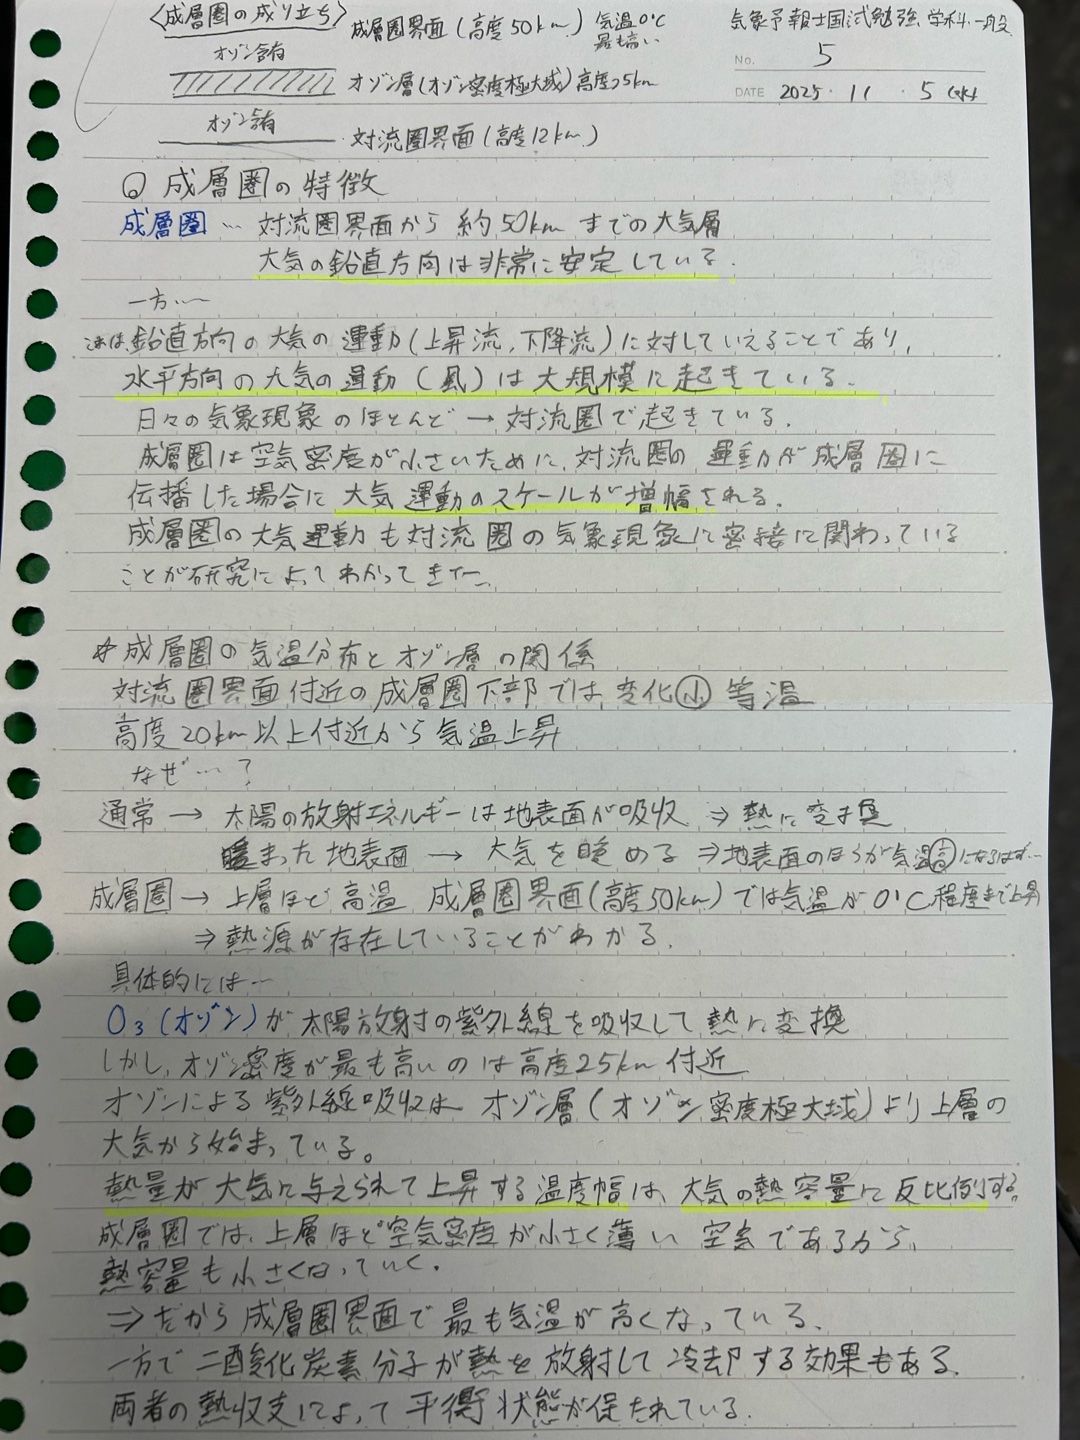 〈成層圏の成り立ち〉
成層圏界面(高度50km) 気温0℃
最も高い
オゾン含有
オゾン層(オゾン密度極大域)高度25km
オゾン含有
対流圏界面(高度12km)
気象予報士国試勉強 学科一般
No. 5
DATE 2025・11・5
◎ 成層圏の特徴
成層圏 … 対流圏界面から 約50kmまでの大気層
大気の鉛直方向は非常に安定している.
一方…
これは、鉛直方向の大気の運動(上昇流、下降流)に対していえることであり、
水平方向の大気の運動(風)は大規模に起きている.
日々の気象現象のほとんど → 対流圏で起きている.
成層圏は空気密度が小さいために、対流圏の運動が成層圏に
伝播した場合に 大気運動のスケールが増幅される.
成層圏の大気運動も対流圏の気象現象に密接に関わっている
ことが研究によってわかってきた.
☆成層圏の気温分布とオゾン層の関係
対流圏界面付近の成層圏下部では、変化小 等温
高度20km以上付近から気温上昇
なぜ…?
通常 → 太陽の放射エネルギーは地表面が吸収 ⇒ 熱に変換
暖まった地表面 → 大気を暖める ⇒地表面のほうが気温高になるはず…
成層圏 → 上層ほど高温 成層圏界面(高度50km)では気温が0℃程度まで上昇
⇒ 熱源が存在していることがわかる.
具体的には…
O3(オゾン)が太陽放射の紫外線を吸収して熱に変換
しかし、オゾン密度が最も高いのは高度25km付近
オゾンによる紫外線吸収は、オゾン層(オゾン密度極大域)より上層の
大気から始まっている。
熱量が大気に与えられて上昇する温度幅は、大気の熱容量に反比例する.
成層圏では、上層ほど空気密度が小さく薄い空気であるから、
熱容量も小さくなっていく.
⇒だから成層圏界面で最も気温が高くなっている.
一方で二酸化炭素分子が熱を放射して冷却する効果もある.
両者の熱収支によって平衡状態が保たれている.